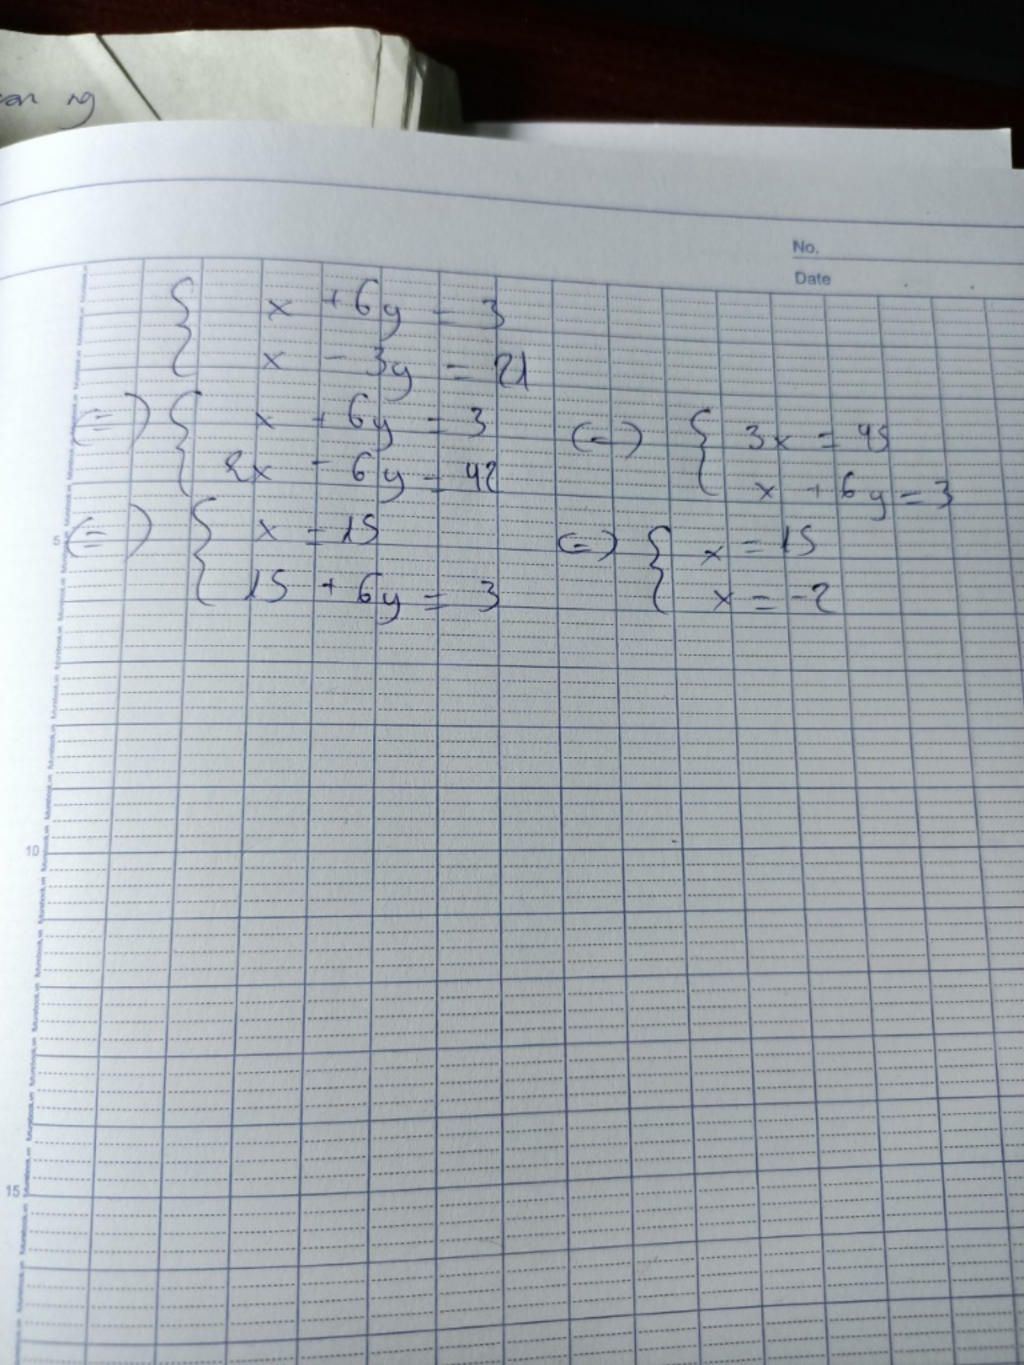 ng
No.
Date
{ x + 6y = 3
x - 3y = 21
(=) { x + 6y = 3
2x - 6y = 42
(=) { 3x = 45
x + 6y = 3
5
(=) { x = 15
15 + 6y = 3
(=) { x = 15
x = -2
10
15